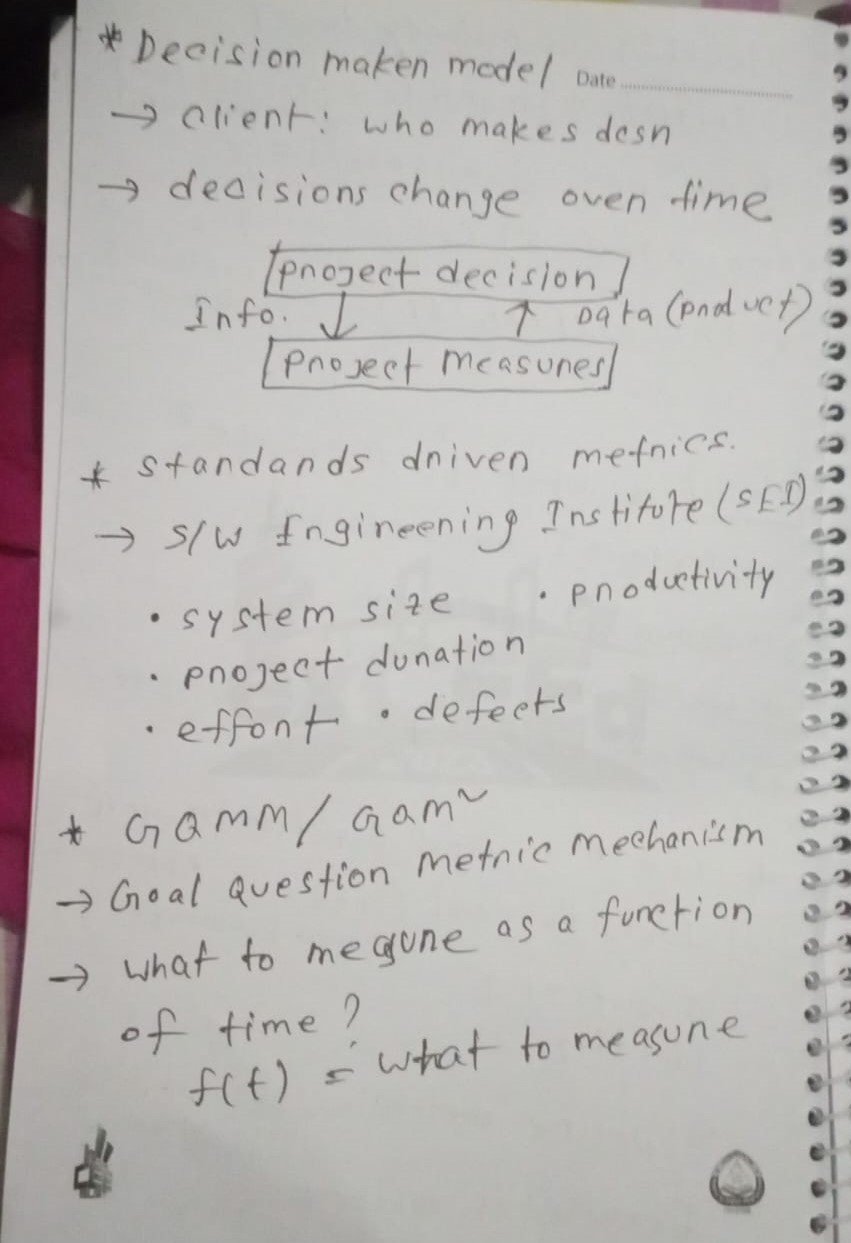 * Decision maker model Date
→ client: who makes desn
→ decisions change over time
project decision
Info. ↓ ↑ Data (product)
project measures
* standards driven metrics.
→ S/W Engineering Institute (SEI)
• system size • productivity
• project duration
• effort • defects
* GQMM/GQM~
→ Goal Question Metric Mechanism
→ what to measure as a function
of time?
f(t) = what to measure